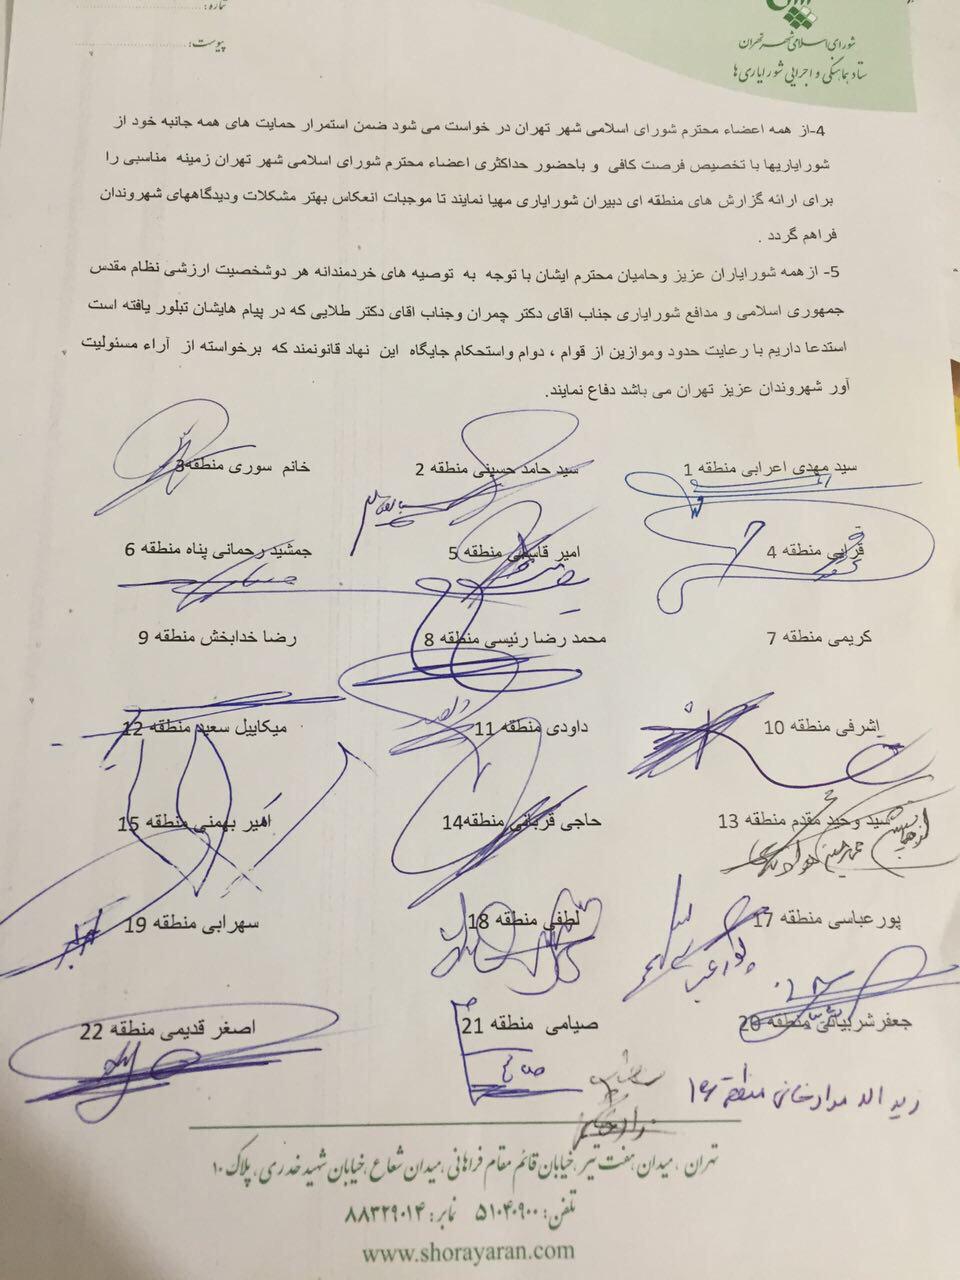 شماره:
پیوست:
شورای اسلامی شهر تهران
ستاد هماهنگی و اجرایی شورایاری ها
4-از همه اعضاء محترم شورای اسلامی شهر تهران در خواست می شود ضمن استمرار حمایت های همه جانبه خود از
شورایاریها با تخصیص فرصت کافی و باحضور حداکثری اعضاء محترم شورای اسلامی شهر تهران زمینه مناسبی را
برای ارائه گزارش های منطقه ای دبیران شورایاری مهیا نمایند تا موجبات انعکاس بهتر مشکلات ودیدگاههای شهروندان
فراهم گردد .
5- ازهمه شورایاران عزیز وحامیان محترم ایشان با توجه به توصیه های خردمندانه هر دوشخصیت ارزشی نظام مقدس
جمهوری اسلامی و مدافع شورایاری جناب اقای دکتر چمران وجناب اقای دکتر طلایی که در پیام هایشان تبلور یافته است
استدعا داریم با رعایت حدود وموازین از قوام ، دوام واستحکام جایگاه این نهاد قانونمند که برخواسته از آراء مسئولیت
آور شهروندان عزیز تهران می باشد دفاع نمایند.
سید مهدی اعرابی منطقه 1 سید حامد حسینی منطقه 2 خانم سوری منطقه3
قرایی منطقه 4 امیر قاسمی منطقه 5 جمشید رحمانی پناه منطقه 6
کریمی منطقه 7 محمد رضا رئیسی منطقه 8 رضا خدابخش منطقه 9
اشرفی منطقه 10 داودی منطقه 11 میکاییل سعید منطقه 12
سید وحید مقدم منطقه 13 حاجی قربانی منطقه14 امیر بهمنی منطقه 15
پورعباسی منطقه 17 لطفی منطقه 18 سهرابی منطقه 19
جعفرشربیانی منطقه 20 صیامی منطقه 21 اصغر قدیمی منطقه 22
منطقه ۱۶
تهران ، میدان هفت تیر ، خیابان قائم مقام فراهانی ، میدان شعاع ، خیابان شهید خدری ، پلاک ۱۰
تلفن: ۵۱۰۴۰۹۰۰ نمابر: ۸۸۳۲۹۰۱۴
www.shorayaran.com